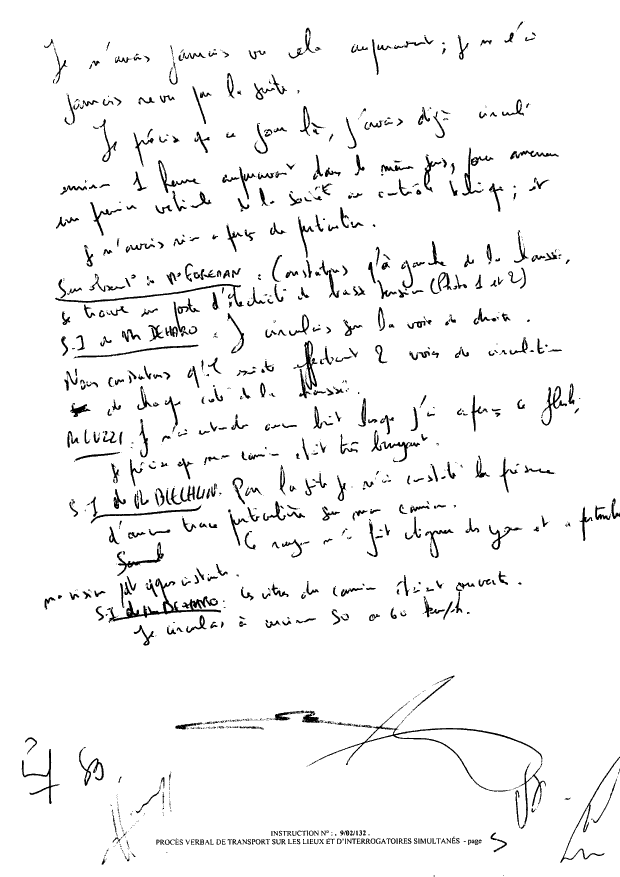 Je n'avais jamais vu cela auparavant ; je ne l'ai
jamais revu par la suite.
Je précise que ce jour là, j'avais déjà circulé
environ 1 heure auparavant dans le même sens, pour amener
un premier véhicule de la société au contrôle technique ; et
je n'avais rien aperçu de particulier.
: Constatons qu'à gauche de la chaussée,
se trouve un poste d'électricité de basse tension (Photo 1 et 2)
S.I de Mr DEHARO : Je circulais sur la voie de droite.
Nous constatons qu'il existe effectivement 2 voies de circulation
de chaque coté de la chaussée.
Mr LUZZI. Je n'ai entendu aucun bruit lorsque j'ai aperçu ce flash,
je précise que mon camion était très bruyant.
S.I de Mr BLECHLIN. Par la suite je n'ai constaté la présence
d'aucune trace particulière sur mon camion.
Ce rayon m'a fait cligner des yeux et a perturbé
ma vision pdt qques instants.
S.I de Mr DEHARO : Les vitres du camion étaient ouvertes.
Je circulais à environ 50 ou 60 km/h.
INSTRUCTION N° : . 9/02/132 .
PROCÈS VERBAL DE TRANSPORT SUR LES LIEUX ET D'INTERROGATOIRES SIMULTANÉS - page 5